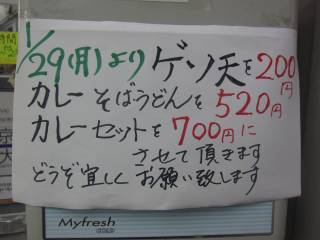 1/29(月)よりゲソ天を200円
カレーそばうどんを520円
カレーセットを700円に
させて頂きます
どうぞ宜しくお願い致します
Myfresh